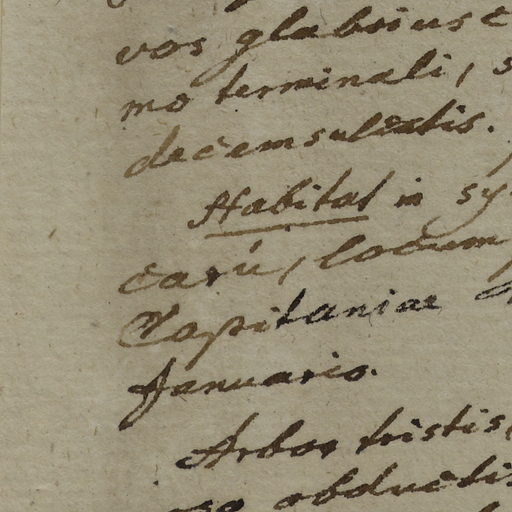 vos glabriusc
mo terminali, s
decemsulcatis.
Habitat in sy
carú, locum
Capitaniae
Januario.
Arbor tristis,
obductis